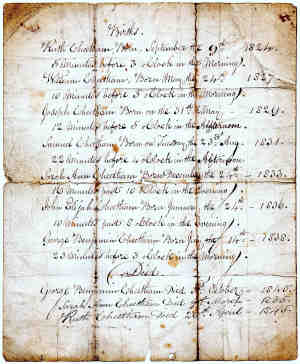 Births.
Ruth Cheetham Born September the 9th 1824.
5 Minutes before 3 oClock in the Morning.
William Cheetham, Born May the 24th 1827
10 Minutes before 5 oClock in the
Joseph Cheetham Born on the 31st May 1829.
12 Minutes before 5 oClock in the Afternoon.
Samuel Cheetham Born on Tuesday the 23rd Aug 1831
22 Minutes before 4 oClock in the Afternoon.
Sarah Ann Cheetham Born the 24th - 1833.
10 Minutes past 10 oClock in the Evening.
John Elijah Cheetham Born January the 24th - 1836.
10 Minutes past 8 oClock in the Evening.
George Benjamin Cheetham Born the 14th - 1838.
23 Minutes before 3 oClock in the Morning.
Died
George Benjamin Cheetham Died October - 1840.
Sarah Ann Cheetham Died
Ruth Cheetham died April -